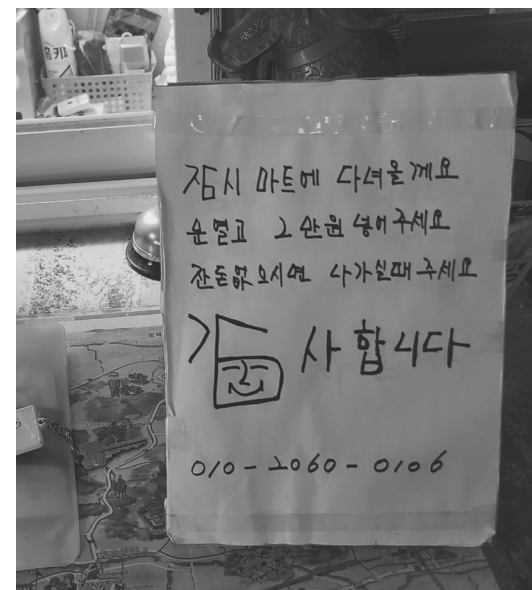 홈키파
잠시 마트에 다녀올께요
문열고 2만원 넣어주세요
잔돈없으시면 나가실때 주세요
감사합니다
010-2060-0106